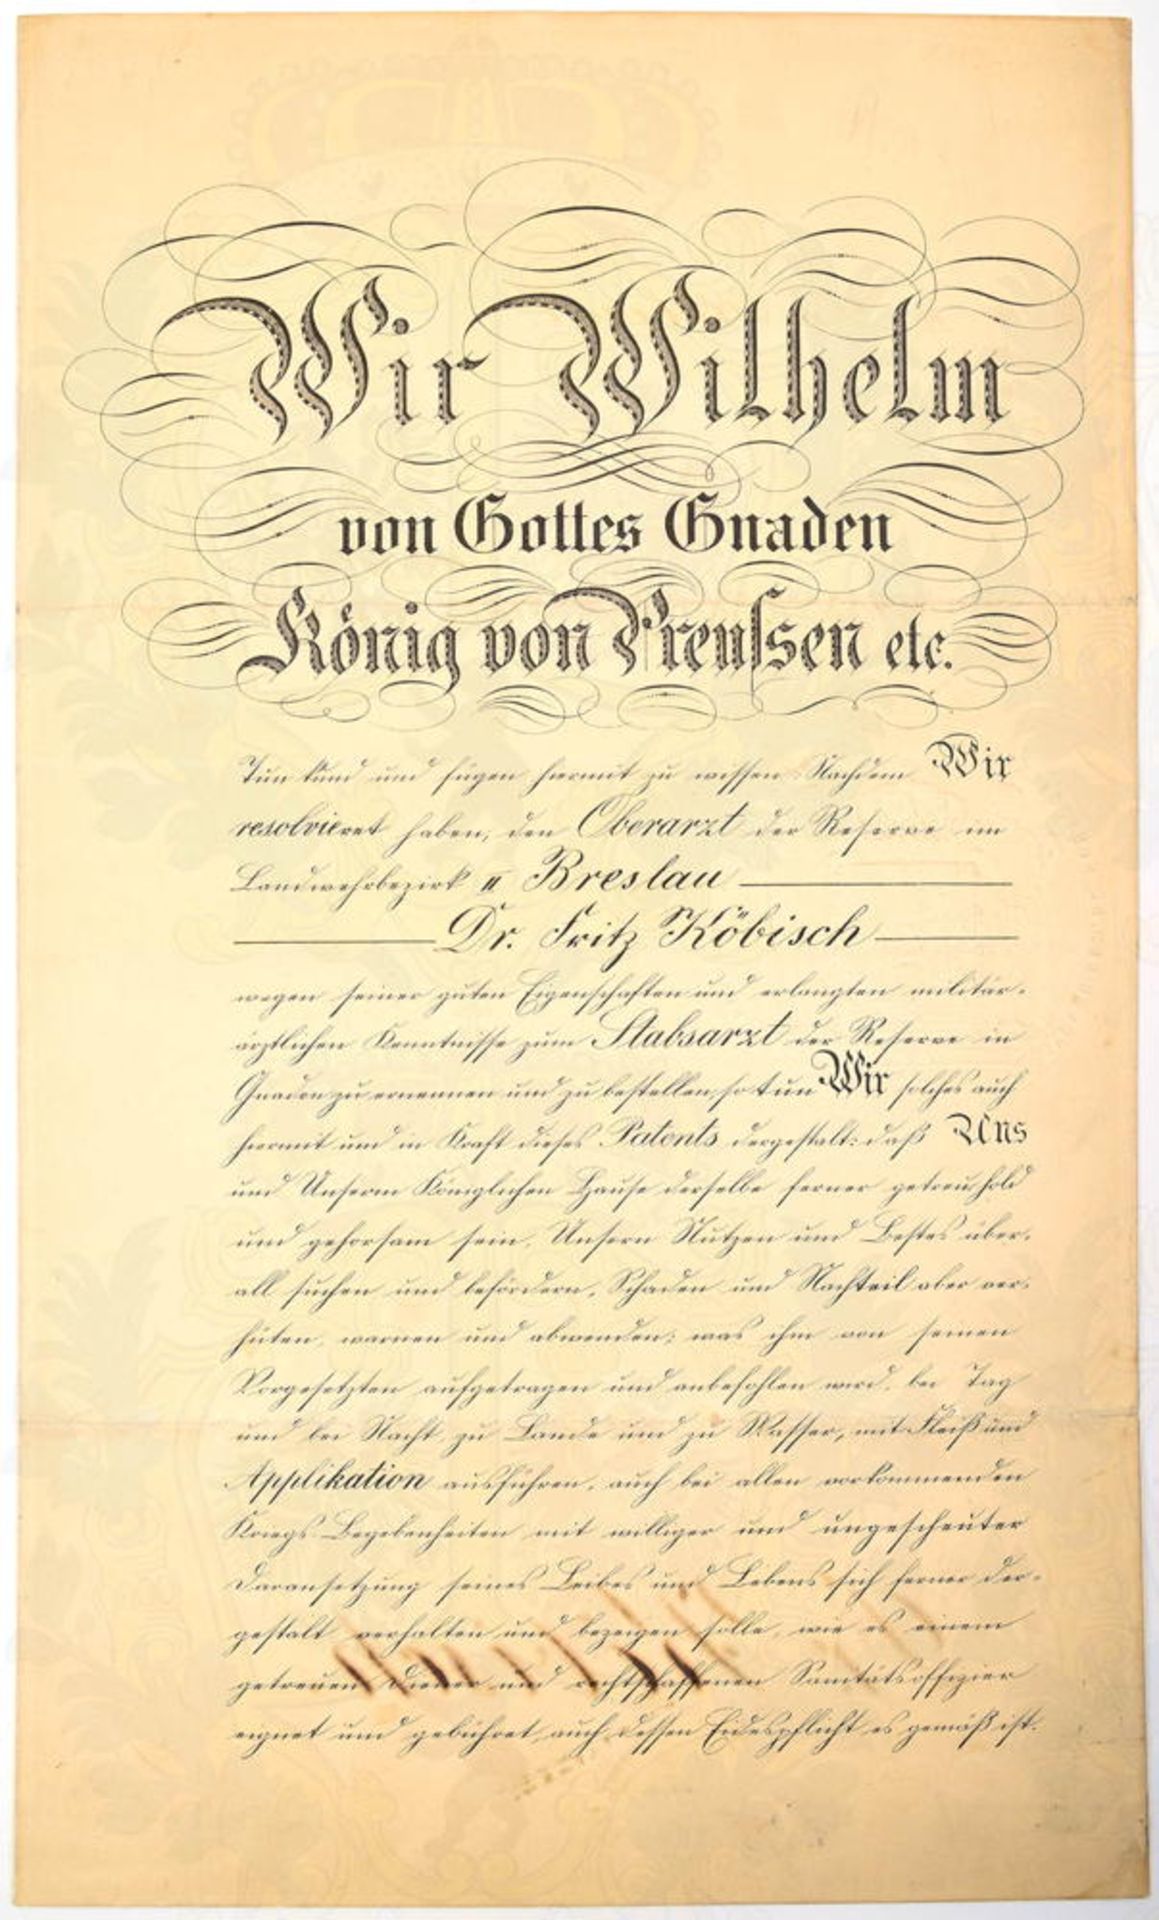 Wir Wilhelm
von Gottes Gnaden
König von Preussen etc.
Tun kund und fügen hiermit zu wissen: Nachdem Wir
resolvieret haben, den Oberarzt der Reserve im
Landwehrbezirk II Breslau
Dr. Fritz Köbisch
wegen seiner guten Eigenschaften und erlangten militär-
ärztlichen Kenntnisse zum Stabsarzt der Reserve in
Gnaden zu ernennen und zu bestellen, so tun Wir solches auch
hiermit und in Kraft dieses Patents dergestalt: daß Uns
und Unserm Königlichen Hause derselbe ferner getreu, hold
und gehorsam sein, Unsern Nutzen und Bestes über-
all suchen und befördern, Schaden und Nachteil aber ver-
hüten, warnen und abwenden; was ihm von seinen
Vorgesetzten aufgetragen und anbefohlen wird, bei Tag
und bei Nacht, zu Lande und zu Wasser, mit Fleiß und
Applikation ausführen, auch bei allen vorkommenden
Kriegs-Begebenheiten mit williger und ungescheuter
Daransetzung seines Leibes und Lebens sich ferner der-
gestalt verhalten und bezeigen solle, wie es einem
getreuen Diener und rechtschaffenen Sanitätsoffizier
eignet und gebühret, auch dessen Eidespflicht es gemäß ist.